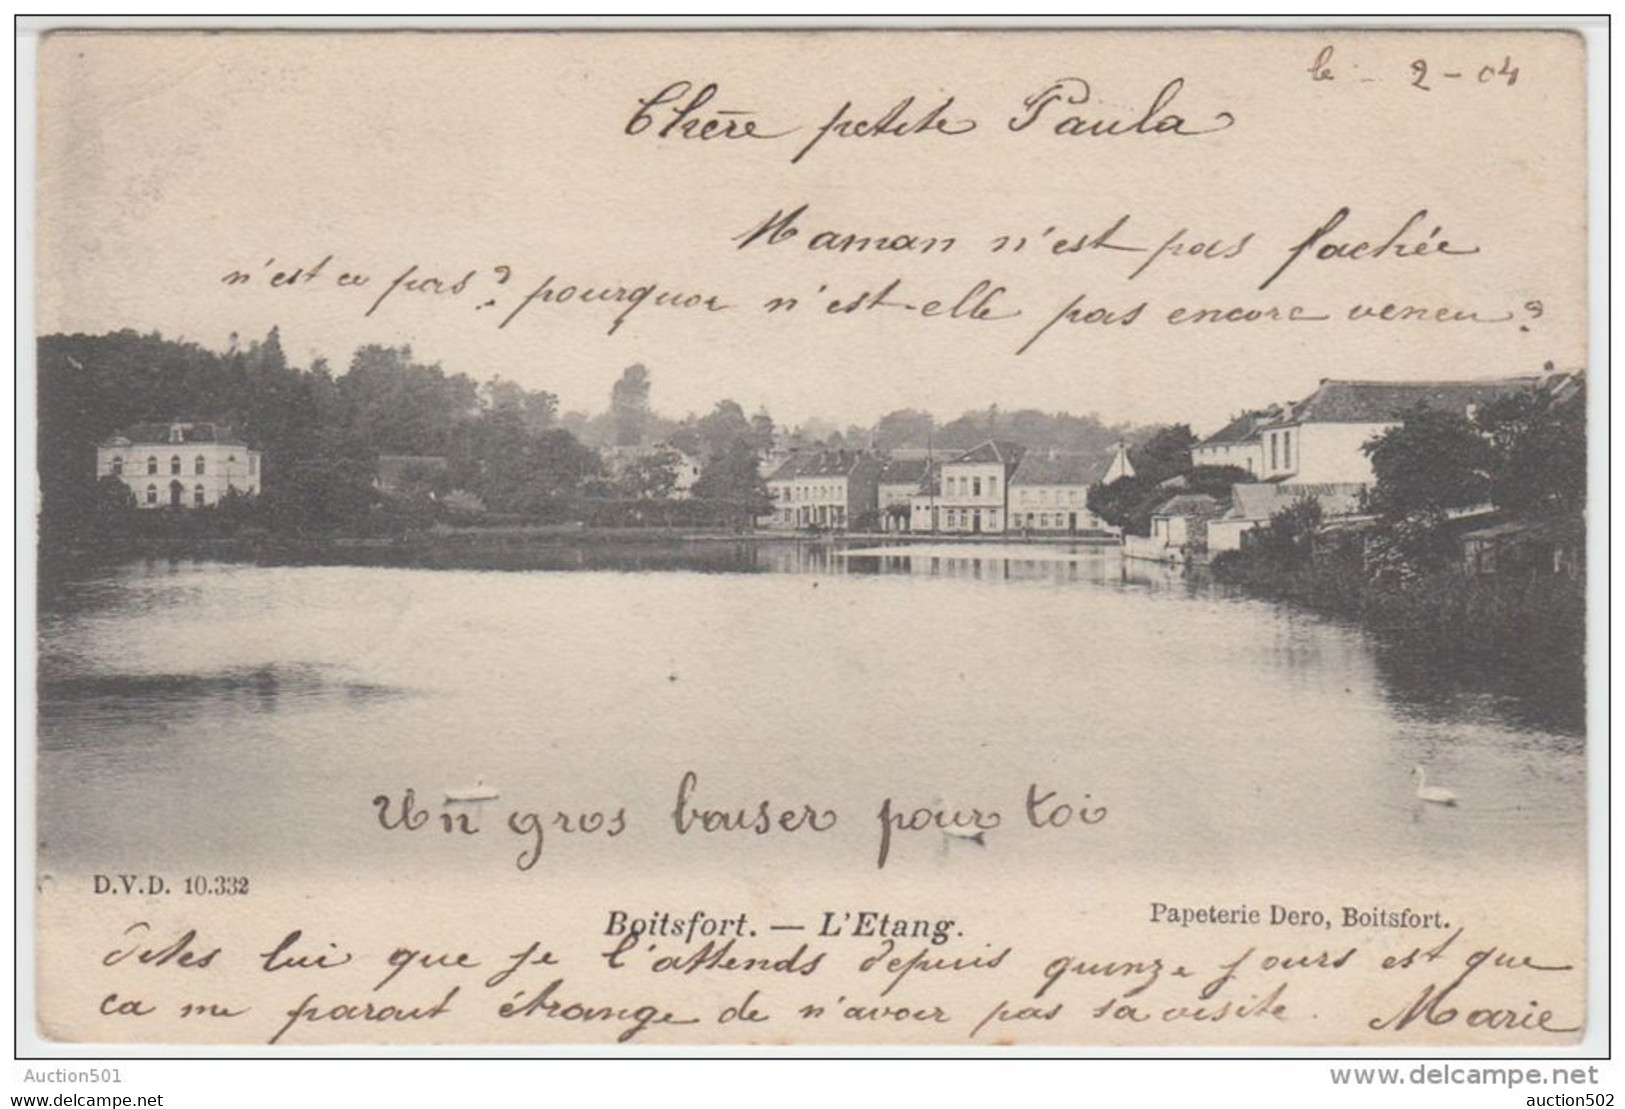 le - 2-04
Chère petite Paula
Maman n'est pas fachée
n'est ce pas? pourquoi n'est-elle pas encore veneu?
Un gros bauser pour toi
D.V.D. 10.332
Boitsfort. — L'Etang.
Papeterie Dero, Boitsfort.
dites lui que je l'attends depuis quinze jours est que
ca me parait étrange de n'avoir pas sa visite. Marie
Auction501
www.delcampe.net
auction502
auction502